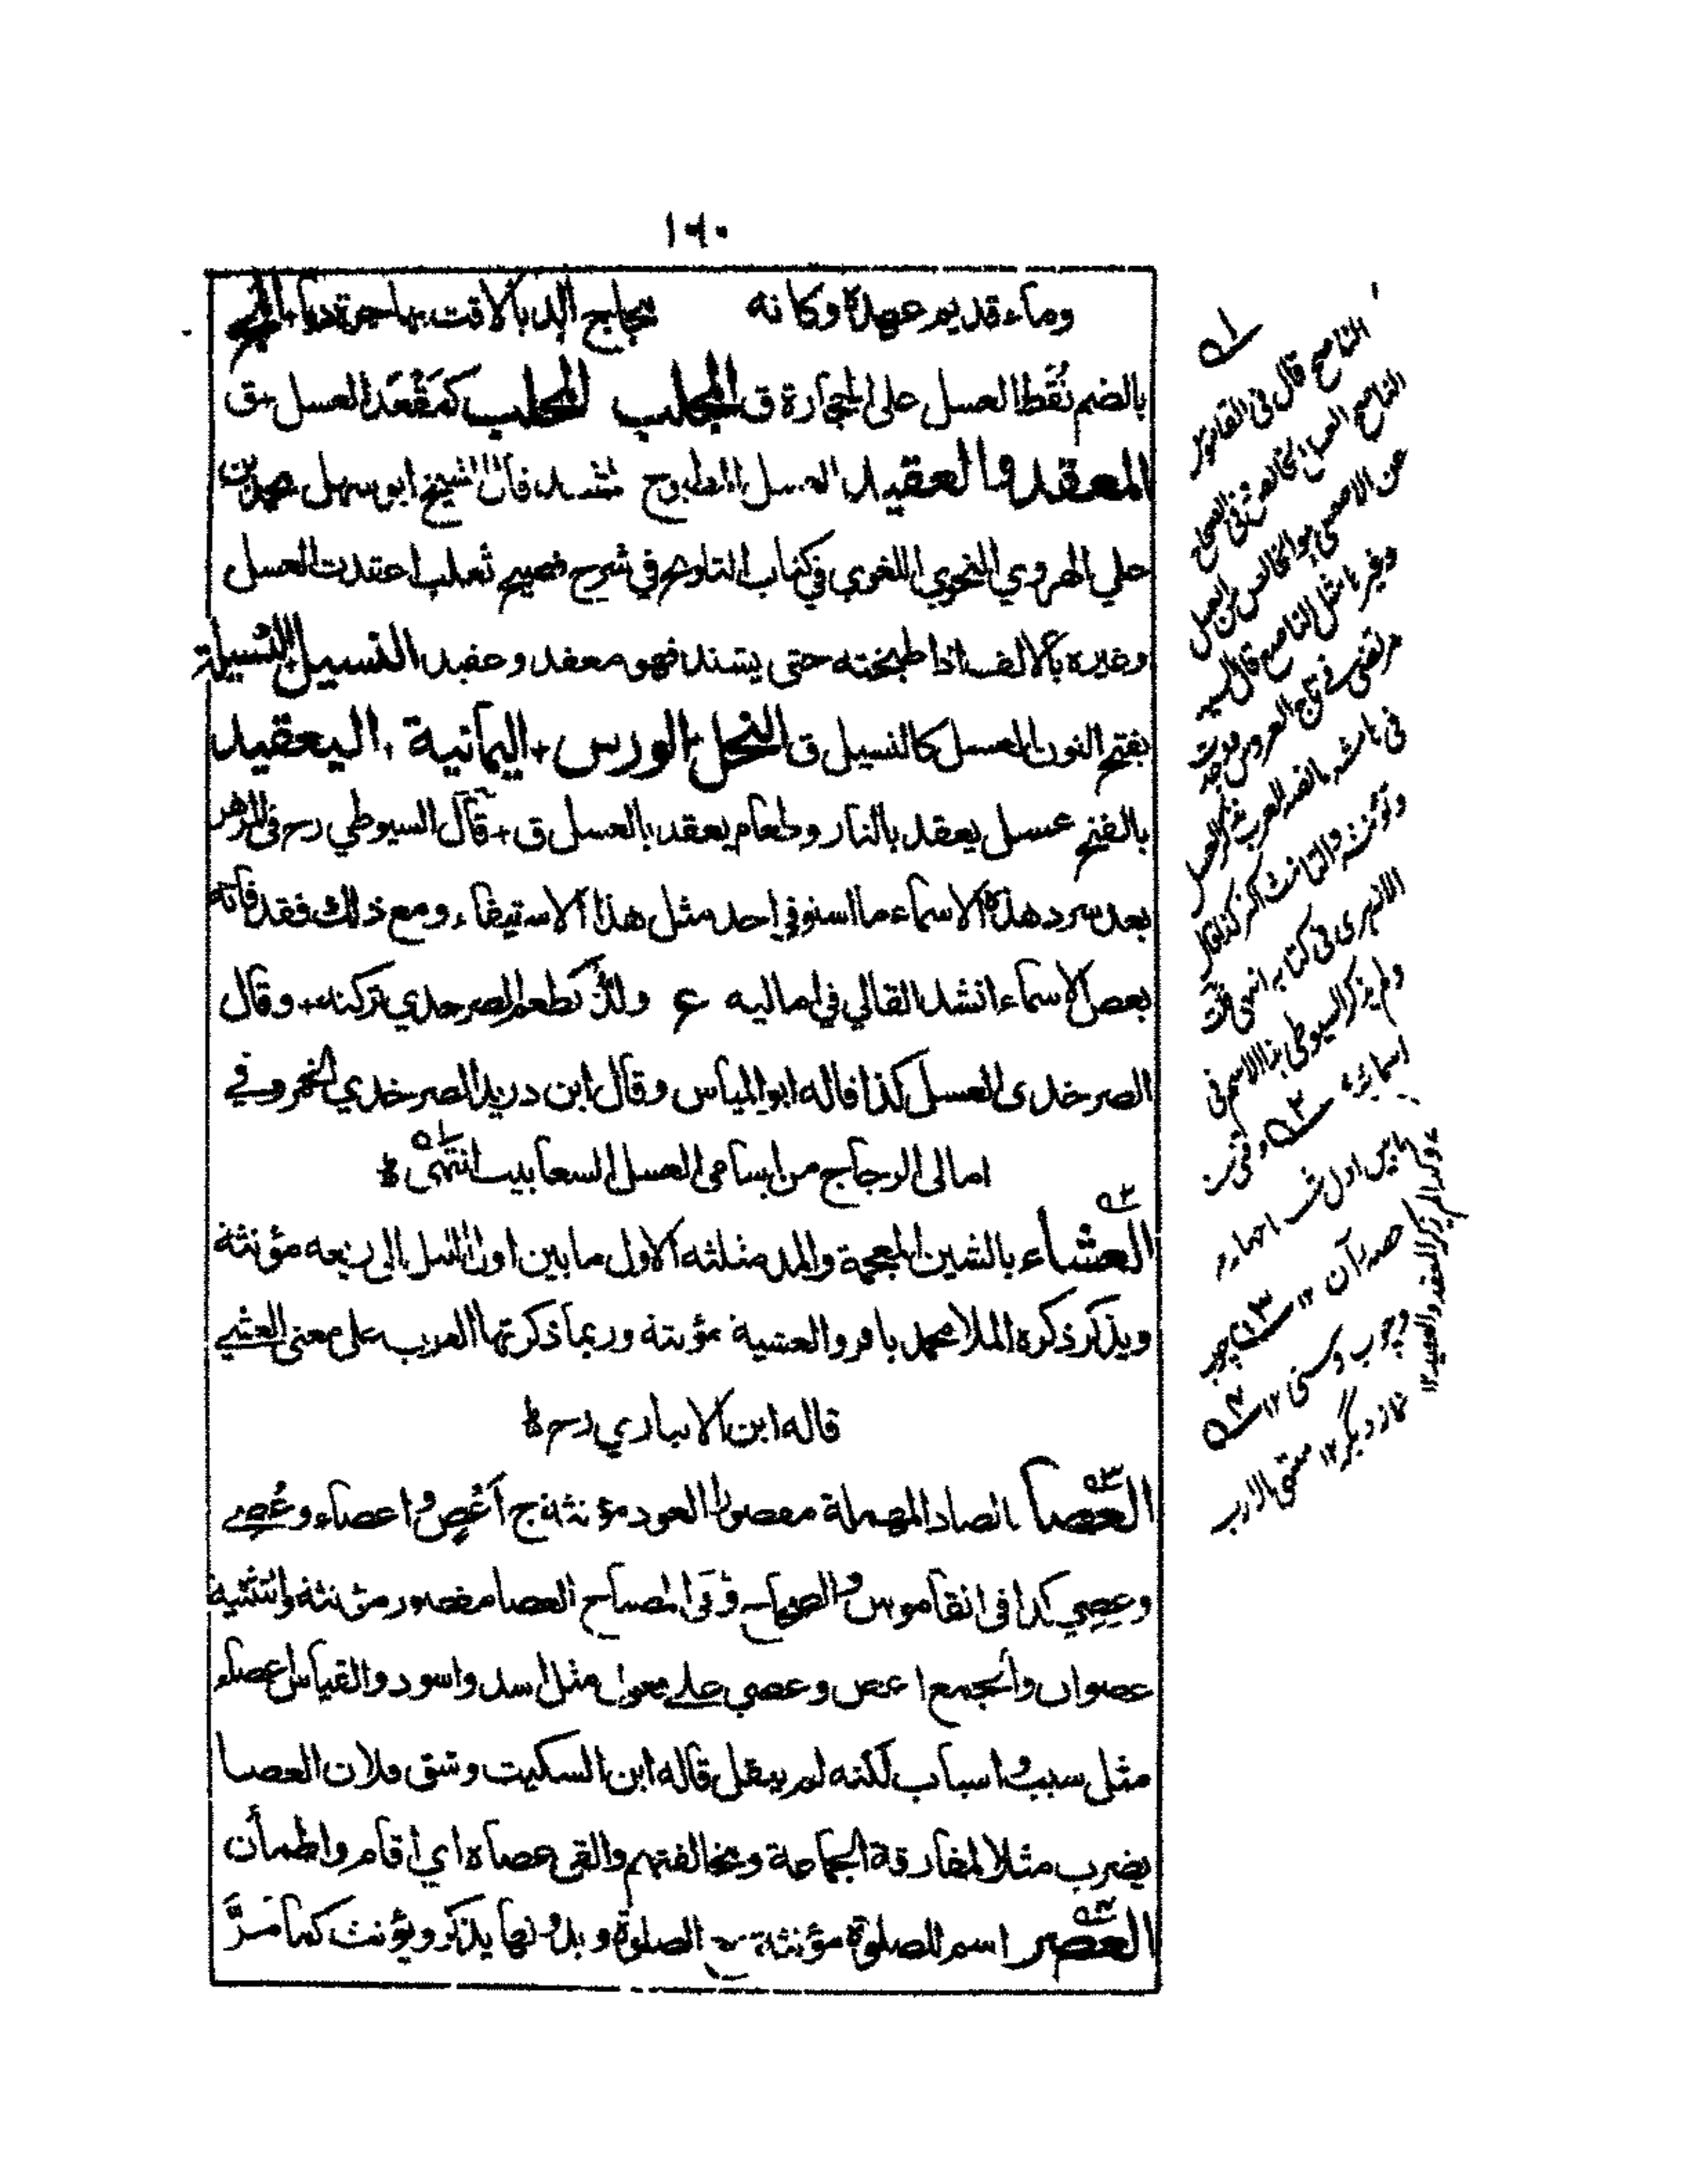 ١٦٠
وماء قديم عهده وكانه
بالضم نُقَط العسل على الحجارة ق المحلب المحلب كمَقْعَد العسل ق
المعقد والعقيد العسل المطبوخ قال الشيخ ابو سهل محمد بن
علي الهروي النحوي اللغوي في كتاب التلويح في شرح فصيح ثعلب اعقدت العسل
وغيره بالالف اذا طبخته حتى يشتد فهو معقد وعقيد النسيل النسيلة
بفتح النون العسل كالنسيل ق النحل + الورس + اليمانية + اليعقيد
بالفتح عسل يعقد بالنار وطعام يعقد بالعسل ق + قال السيوطي رح في المزهر
بعد سرد هذه الاسماء ما استوفى احد مثل هذا الاستيفاء ومع ذلك فقد فاته
بعض الاسماء انشد القالي في اماليه ع ولذٍّ كطعم الصرخدي تركته + وقال
الصرخدى العسل كذا قاله ابو المياس وقال ابن دريد الصرخدي الخمر وفي
امالى الزجاج من اسامى العسل السعابيب انتهى
العشاء بالشين المعجمة والمد مثلثه الاول ما بين اول الليل الى ربعه مؤنثة
ويذكر ذكره الملا محمد باقر والعشية مؤنثة وربما ذكرتها العرب على معنى العشي
قاله ابن الانباري رح
العصا بالصاد المهملة مقصورا العود مؤنثة ج اَعْصٍ واعصاء وعُصِي
وعِصِي كذا فى القاموس والصحاح وفى المصباح العصا مقصور مؤنثة والتثنية
عصوان والجمع اعص وعصي على فعول مثل اسد واسود والقياس اعصاء
مثل سبب واسباب لكنه لم ينقل قاله ابن السكيت وشق فلان العصا
يضرب مثلا لمفارقة الجماعة ومخالفتهم والقى عصاه اي أقام واطمأن
العصر اسم للصلوة مؤنثة مع الصلوة وبدونها يذكر ويؤنث كما مَرَّ
الناصح قال فى القاموس
الناصح العسل الخالص وفى الصحاح
عن الاصمعي هو الخالص من العسل
وغيره مثل الناصع قال السيد
مرتضى فى تاج العروس
وتؤنثه والتانيث اكثر كذا ذكره
الازهرى فى كتابه انتهى قلت
ولم يذكر السيوطى هذا الاسم فى
اسمائه
وچوب دستى ١٢
نماز ديگر ١٢ منتهى الارب